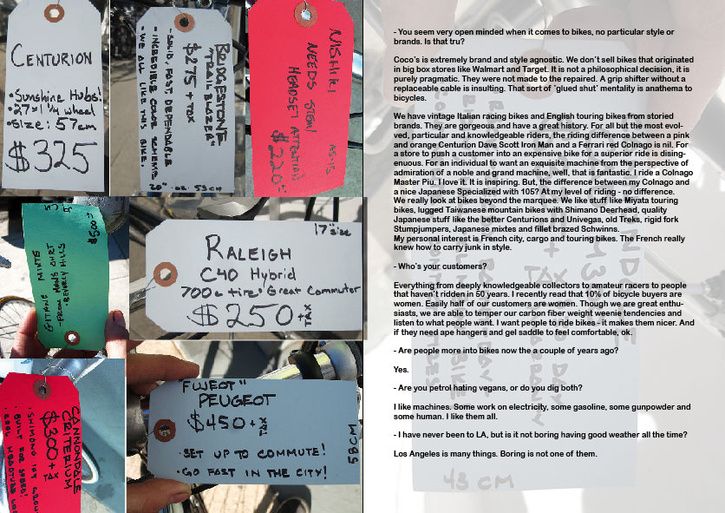 CENTURION
• Sunshine Hubs!
• 27 x 1 1/4 wheel
• Size: 57cm
$325
BRIDGESTONE
"TRAIL BLAZER"
$275 + TAX
• SOLID, FAST, DEPENDABLE
• INCREDIBLE COLOR SCHEME
• WE ALL LIKE THIS BIKE.
20" OR 53CM
NISHIKI
NEEDS STEM/
HEADSET ATTENTION
AS-IS
$220
GITANE MIXTE
- FROM MOM'S CHIRT
- BEVERLY HILLS
$500
17" size
RALEIGH
C40 Hybrid
700c tire • Great Commuter
$250 + TAX
CANNONDALE
CRITERIUM
$300 + TAX
• SHIMANO 105 GROUP
• BUILT FOR SPEED!
"FUJEOT"
PEUGEOT
$450 + TAX
• SET UP TO COMMUTE!
• GO FAST IN THE CITY!
58CM
- You seem very open minded when it comes to bikes, no particular style or
brands. Is that tru?
Coco's is extremely brand and style agnostic. We don't sell bikes that originated
in big box stores like Walmart and Target. It is not a philosophical decision, it is
purely pragmatic. They were not made to the repaired. A grip shifter without a
replaceable cable is insulting. That sort of 'glued shut' mentality is anathema to
bicycles.
We have vintage Italian racing bikes and English touring bikes from storied
brands. They are gorgeous and have a great history. For all but the most evol-
ved, particular and knowledgeable riders, the riding difference between a pink
and orange Centurion Dave Scott Iron Man and a Ferrari red Colnago is nil. For
a store to push a customer into an expensive bike for a superior ride is dising-
enuous. For an individual to want an exquisite machine from the perspective of
admiration of a noble and grand machine, well, that is fantastic. I ride a Colnago
Master Piu. I love it. It is inspiring. But, the difference between my Colnago and
a nice Japanese Specialized with 105? At my level of riding - no difference.
We really look at bikes beyond the marquee. We like stuff like Miyata touring
bikes, lugged Taiwanese mountain bikes with Shimano Deerhead, quality
Japanese stuff like the better Centurions and Univegas, old Treks, rigid fork
Stumpjumpers, Japanese mixtes and fillet brazed Schwinns.
My personal interest is French city, cargo and touring bikes. The French really
knew how to carry junk in style.
- Who's your customers?
Everything from deeply knowledgeable collectors to amateur racers to people
that haven't ridden in 50 years. I recently read that 10% of bicycle buyers are
women. Easily half of our customers are women. Though we are great enthu-
siasts, we are able to temper our carbon fiber weight weenie tendencies and
listen to what people want. I want people to ride bikes - it makes them nicer. And
if they need ape hangers and gel saddle to feel comfortable, ok.
- Are people more into bikes now the a couple of years ago?
Yes.
- Are you petrol hating vegans, or do you dig both?
I like machines. Some work on electricity, some gasoline, some gunpowder and
some human. I like them all.
- I have never been to LA, but is it not boring having good weather all the time?
Los Angeles is many things. Boring is not one of them.
48 CM